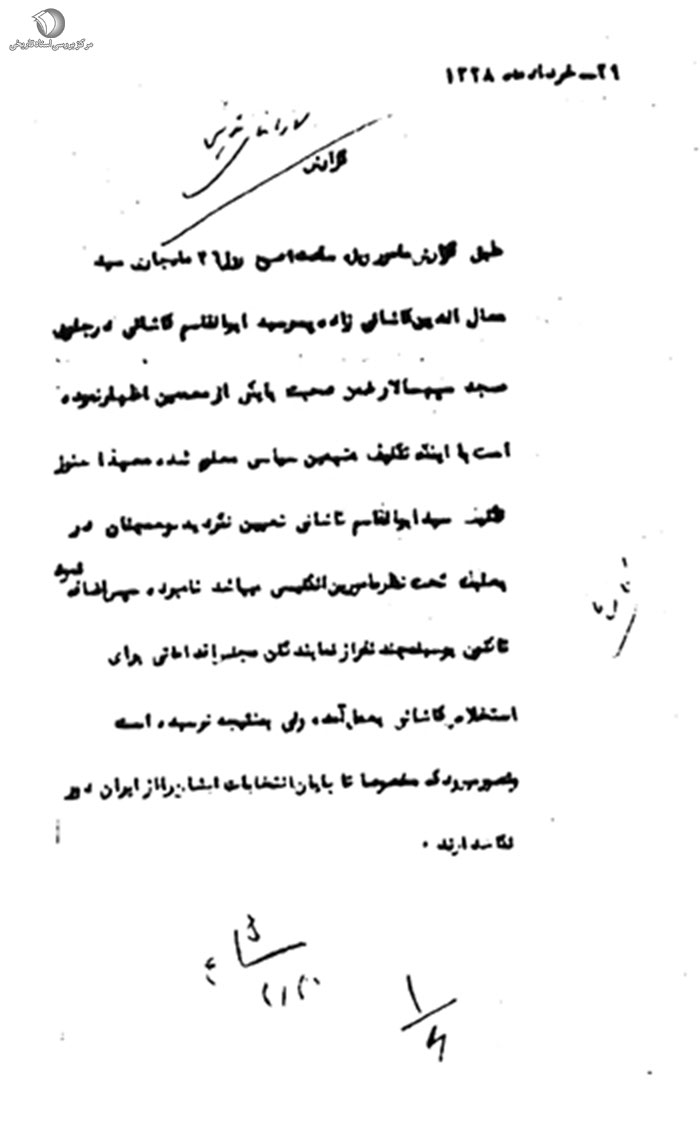 مرکز بررسی اسناد تاریخی
۲۹ـ خرداد ماه ۱۳۲۸
گزارش
طبق گزارش مامور ویژه ساعت صبح روز ۲۶ ماه جاری سید
الدین کاشانی زاده پسر سید ابوالقاسم کاشانی در جلوی
مسجد سپهسالار ضمن صحبت با یکی از معممین اظهار نموده
است با اینکه تکلیف متهمین سیاسی معلوم شده معهذا هنوز
تکلیف سید ابوالقاسم کاشانی تعیین نگردیده و همچنان در
تحت نظر مامورین انگلیسی میباشد نامبرده سپس اضافه نمود
تاکنون بوسیله چند نفر از نمایندگان مجلس اقداماتی برای
استخلاص کاشانی بعمل آمده ولی بنتیجه نرسیده است
و تصور میرود که مخصوصا تا پایان انتخابات ایشان را از ایران دور
نگاهدارند .